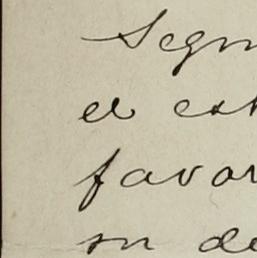 Segu
el est
favor
su de